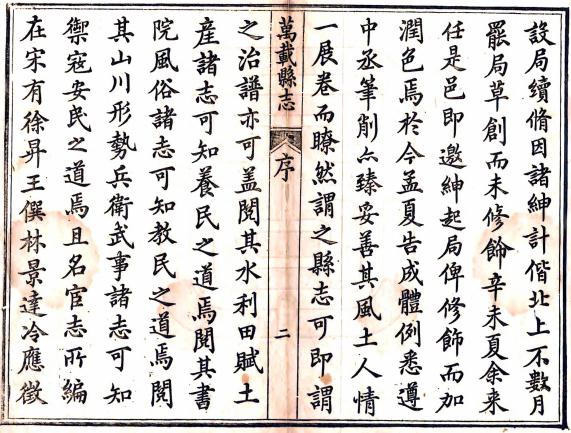 設局續脩因諸紳計偕北上不數月
罷局草創而未修飾辛未夏余来
任是邑即邀紳起局俾修飾而加
潤色焉於今孟夏告成體例悉遵
中丞筆削亦臻妥善其風土人情
一展卷而瞭然謂之縣志可即謂
萬載縣志
序
二
之治譜亦可盖閱其水利田賦土
產諸志可知養民之道焉閱其書
院風俗諸志可知教民之道焉閱
其山川形勢兵衛武事諸志可知
禦寇安民之道焉且名宦志所編
在宋有徐昇王僎林景達冷應徵